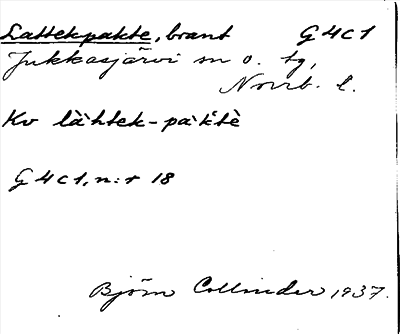 Lattekpakte, brant G4c1
Jukkasjärvi sn o. tg,
Norrb. l.
Kv là̀htek-pàktè
G4c1, n:r 18
Björn Collinder 1937.